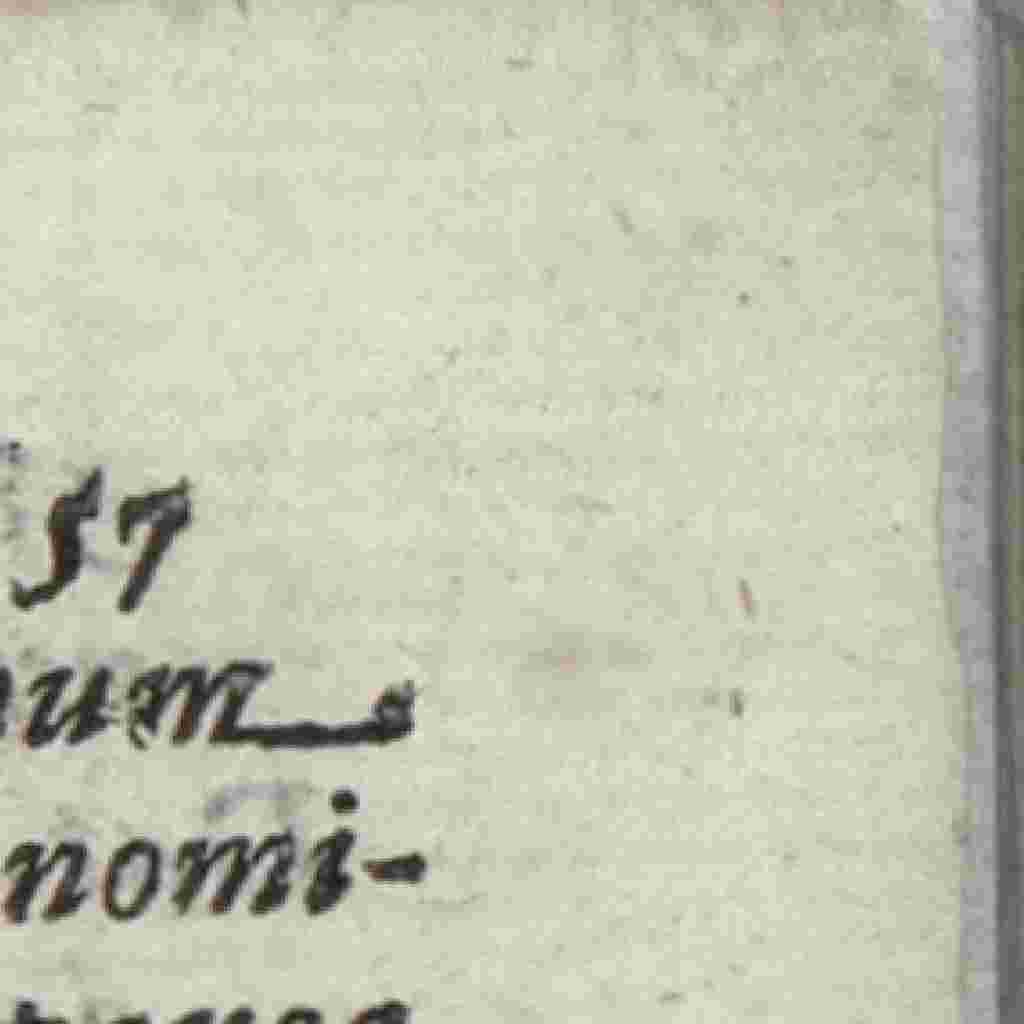 57
num
nomi-